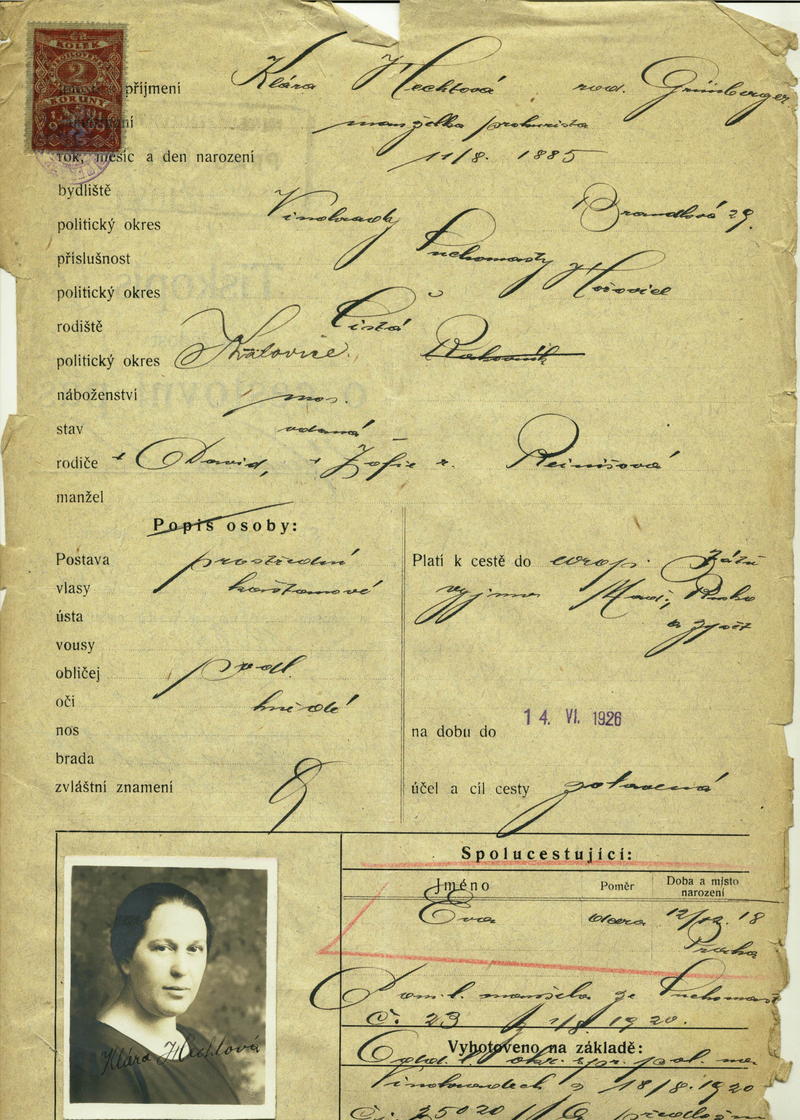 KOLEK
2
KORUNY
příjmení Klára Hechtová roz. Grünberger
manželka prokurista
rok, měsíc a den narození 11/8. 1885
bydliště
politický okres Vinohrady Brandlová 29.
příslušnost Suchomasty
politický okres Hořovice
rodiště Čistá
politický okres Kralovice. Rakovník
náboženství mos.
stav vdaná
rodiče David, Žofie r. Reinišová
manžel
Popis osoby:
Postava prostřední
vlasy kaštanové
ústa
vousy
obličej podl.
oči hnědé
nos
brada
zvláštní znamení
Platí k cestě do evrop.
vyjma Maď., Rusko
na dobu do 14. VI. 1926
účel a cíl cesty zotavená
Spolucestující:
Jméno Poměr Doba a místo narození
Eva dcera 12/IX. 18
Praha
Dom. l. manžela ze Suchomast
č. 23 1/8. 1920.
Vyhotoveno na základě:
Vinohradech z 18/8. 1920
Čj. 25020
Klára Hechtová